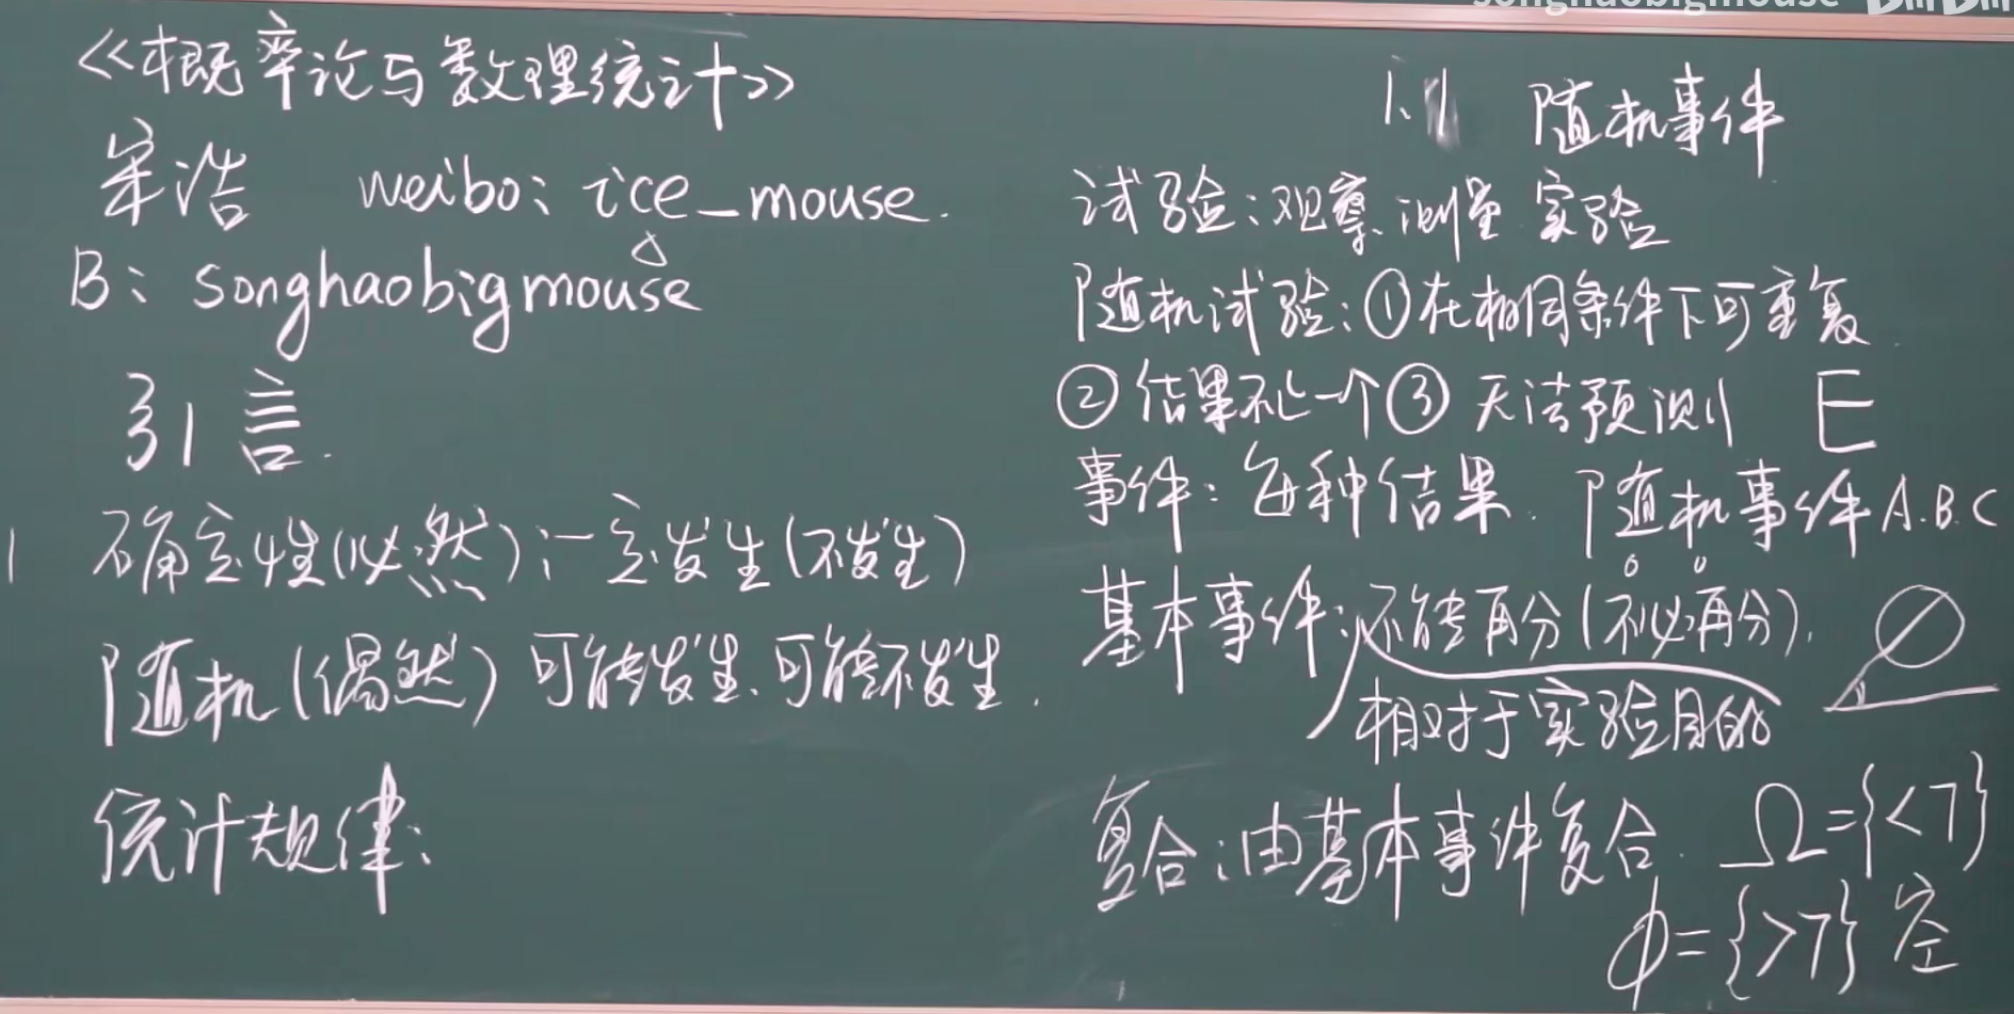 songhaobigmouse
《概率论与数理统计》
宋浩 weibo: ice_mouse.
B: songhaobigmouse
引言.
1 确定性(必然):一定发生(不发生)
随机(偶然) 可能发生、可能不发生.
统计规律:
1.1 随机事件
试验:观察.测量.实验
随机试验:①在相同条件下可重复.
②结果不止一个③无法预测 E
事件:每种结果. 随机事件 A.B.C
基本事件:不能再分(不必再分).
相对于实验目的
复合:由基本事件复合. Ω={<7}
Φ={>7} 空